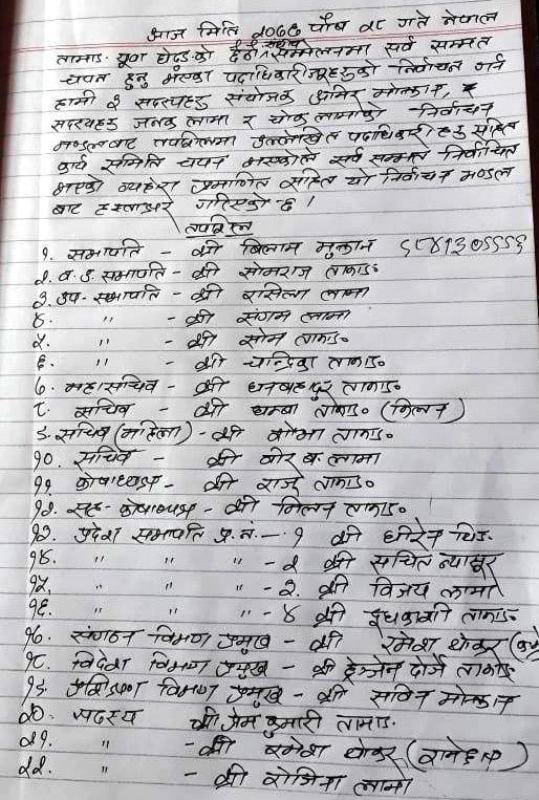 आज मिति २०७७ पौष २८ गते नेपाल
तामाङ यूवा घेदुङ को दैतौ सम्मेलनमा सर्व सम्मत
चयन हुनु भएका पदाधिकारीज्यूहरुको निर्वाचन गर्न
हामी ३ सदस्यहरु संयोजक अमिर मोक्तान, र
सदस्यहरु जनक लामा र योक लामाको निर्वाचन
मण्डलबाट तपशिलमा उल्लेखित पदाधिकारीहरु सहित
कार्य समिति चयन भएकोले सर्व सम्मत निर्वाचित
भएको व्यहोरा प्रमाणित सहित यो निर्वाचन मण्डल
बाट हस्ताक्षर गरिएको छ।
तपशिल
१. सभापति - श्री बिलाम मुक्तान ९८४१३०५५५६
२. व. उ. सभापति - श्री सोमराज तामाङ
३. उप-सभापति - श्री रासिला लामा
४. " - श्री संगम लामा
५. " - श्री सोम तामाङ
६. " - श्री चान्द्रिका तामाङ
७. महासचिव - श्री धनबहादुर तामाङ
८. सचिव - श्री घम्बा तामाङ (मिलन)
९. सचिव (महिला) - श्री सोमा तामाङ
१०. सचिव - श्री बीर ब. लामा
११. कोषाध्यक्ष - श्री राजु तामाङ
१२. सह-कोषाध्यक्ष - श्री मिलन तामाङ
१३. प्रदेश सभापति प्र. नं. - १ श्री धीरेन घिङ
१४. " " " - २ श्री सचित न्यासुर
१५. " " " - ३ श्री विजय लामा
१६. " " " - ४ श्री इधकाशी तामाङ
१७. संगठन विभाग प्रमुख - श्री रमेश थोकर
१८. विदेश विभाग प्रमुख - श्री ईन्जेन दोर्जे तामाङ
१९. प्रशिक्षण विभाग प्रमुख - श्री सविन मोक्तान
२०. सदस्य श्री प्रेम कुमारी तामाङ
२१. " - श्री रमेश थोकर (रामेछाप)
२२. " - श्री रोजिना लामा